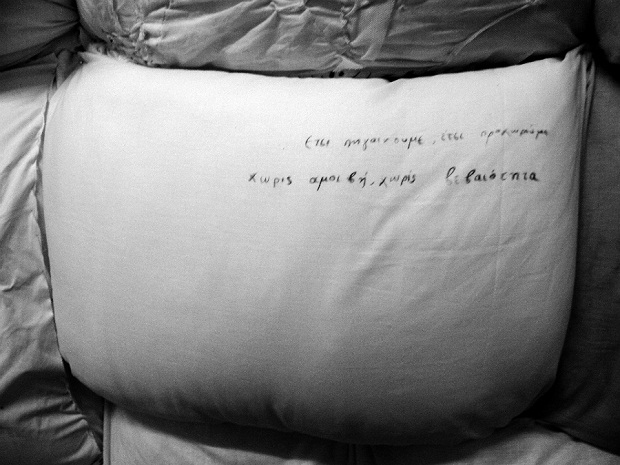 έτσι πηγαίνουμε, έτσι προχωρούμε
χωρίς αμοιβή, χωρίς βεβαιότητα